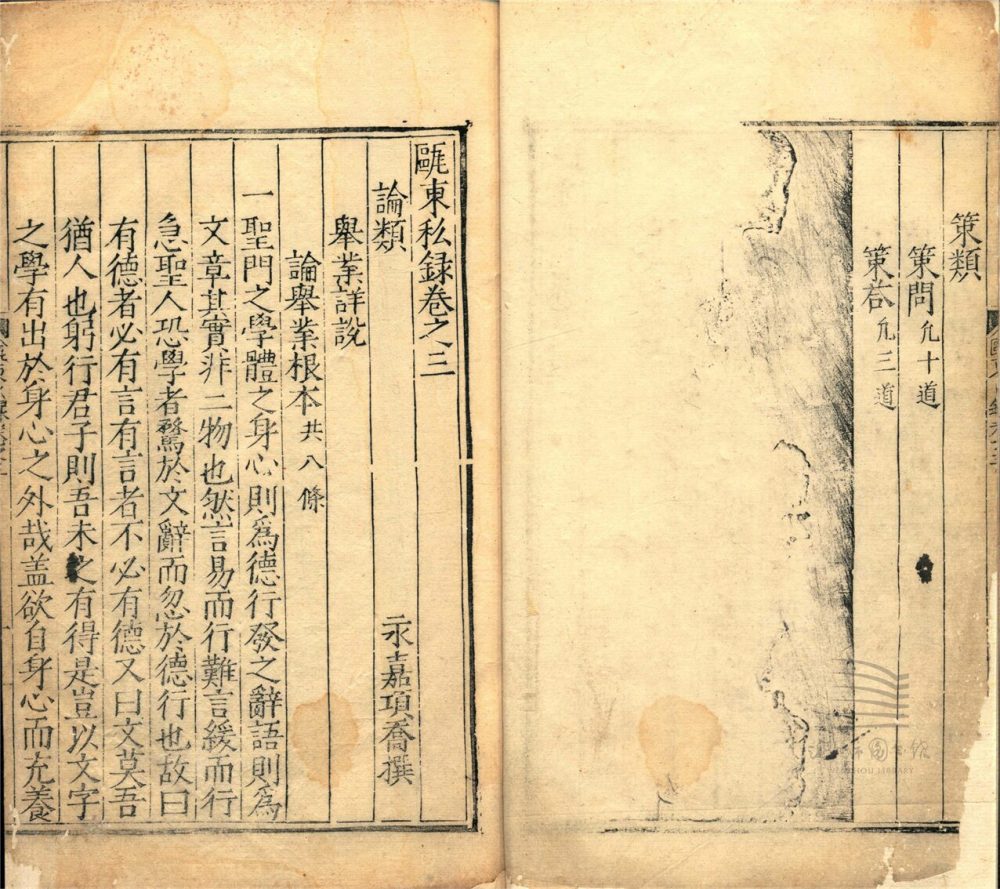 策類
策問凢十道
策荅凢三道
甌東私録卷之三
論類 永嘉項喬撰
舉業詳說
論舉業根本共八條
一聖門之學體之身心則爲德行發之辭語則爲
文章其實非二物也然言易而行難言緩而行
急聖人恐學者騖於文辭而忽於德行也故曰
有德者必有言有言者不必有德又曰文莫吾
猶人也躬行君子則吾未之有得是豈以文字
之學有出於身心之外哉盖欲自身心而充養
WENZHOU LIBRARY